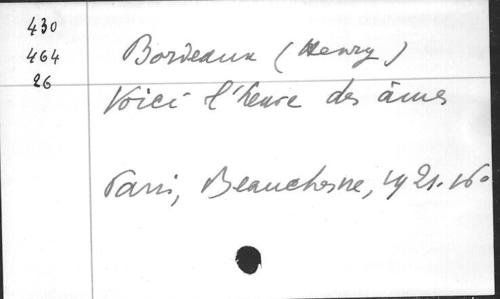 430
464
26
Bordeaux (Henry)
Voici l'heure des âmes
Paris, Beauchesne, 1921. 16°